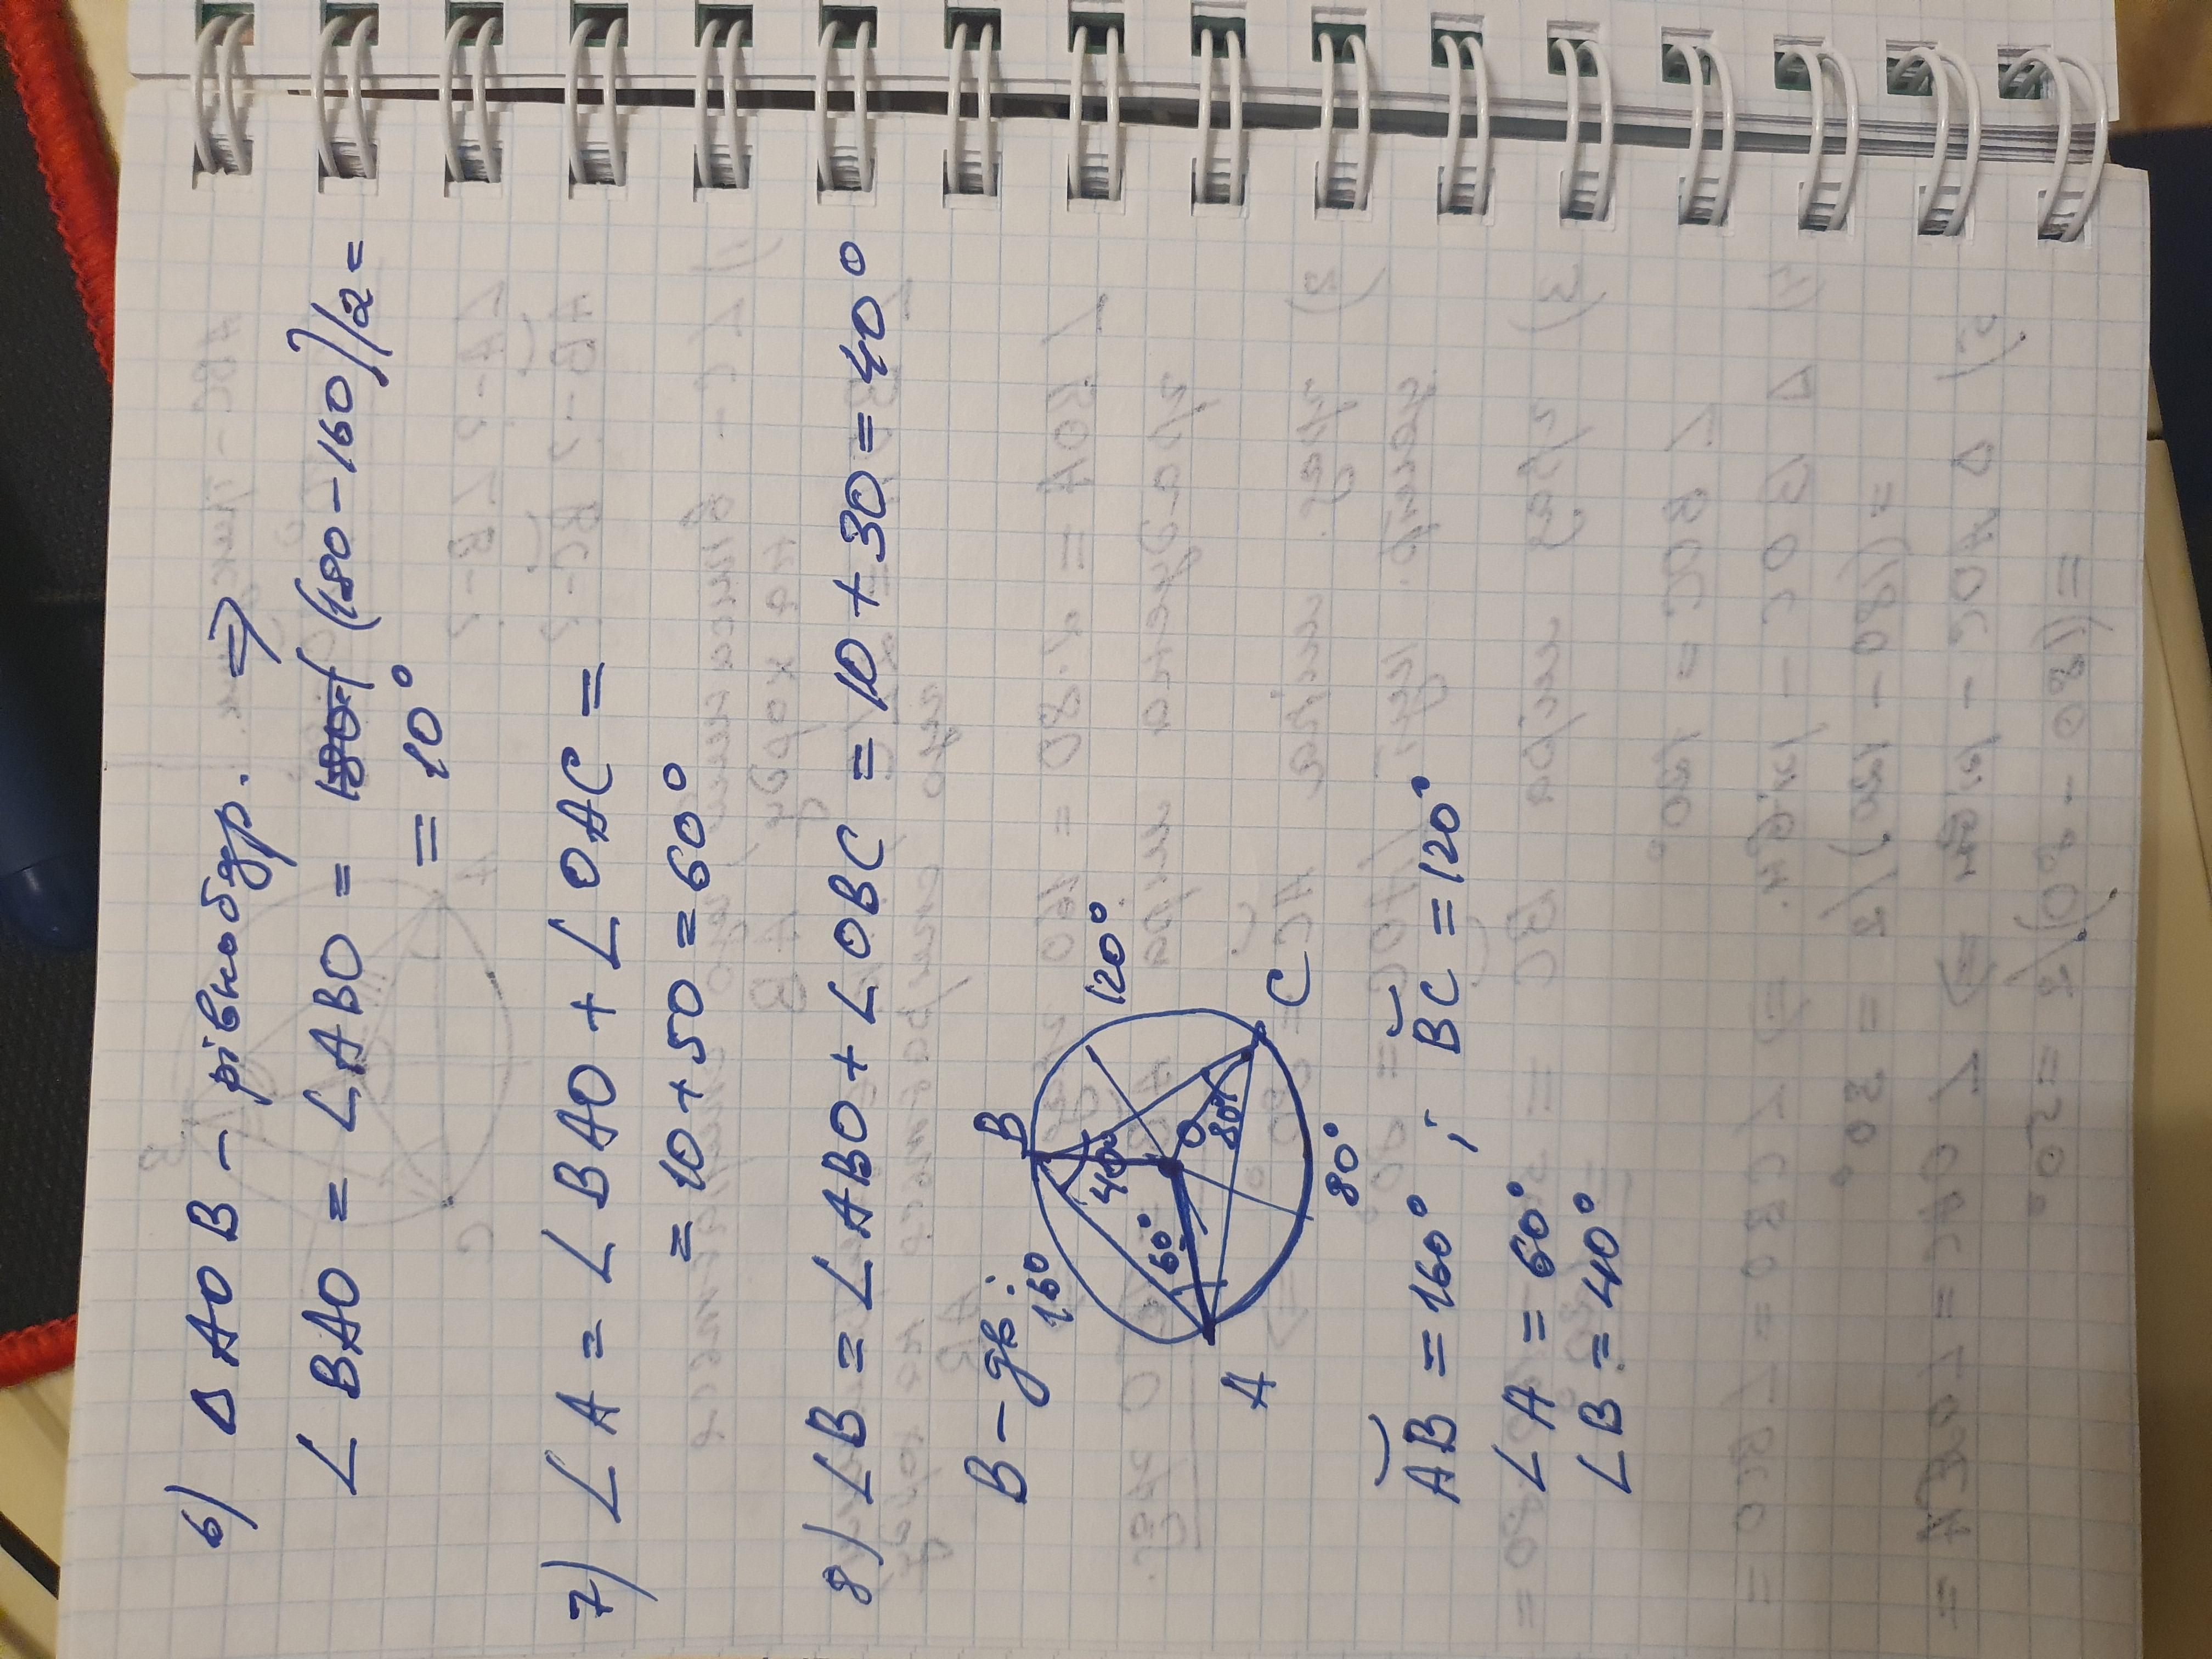 6) Δ AOB - рівнобедр. ⇒
∠ BAO = ∠ ABO = (180-160)/2 =
= 10°
7) ∠ A = ∠ BAO + ∠ OAC =
= 10 + 50 = 60°
8) ∠ B = ∠ ABO + ∠ OBC = 10 + 30 = 40°
В - дь:
B
160
120°
40°
60°
O
80°
A
C
80°
AB = 160° ; BC = 120°
∠ A = 60°
∠ B = 40°